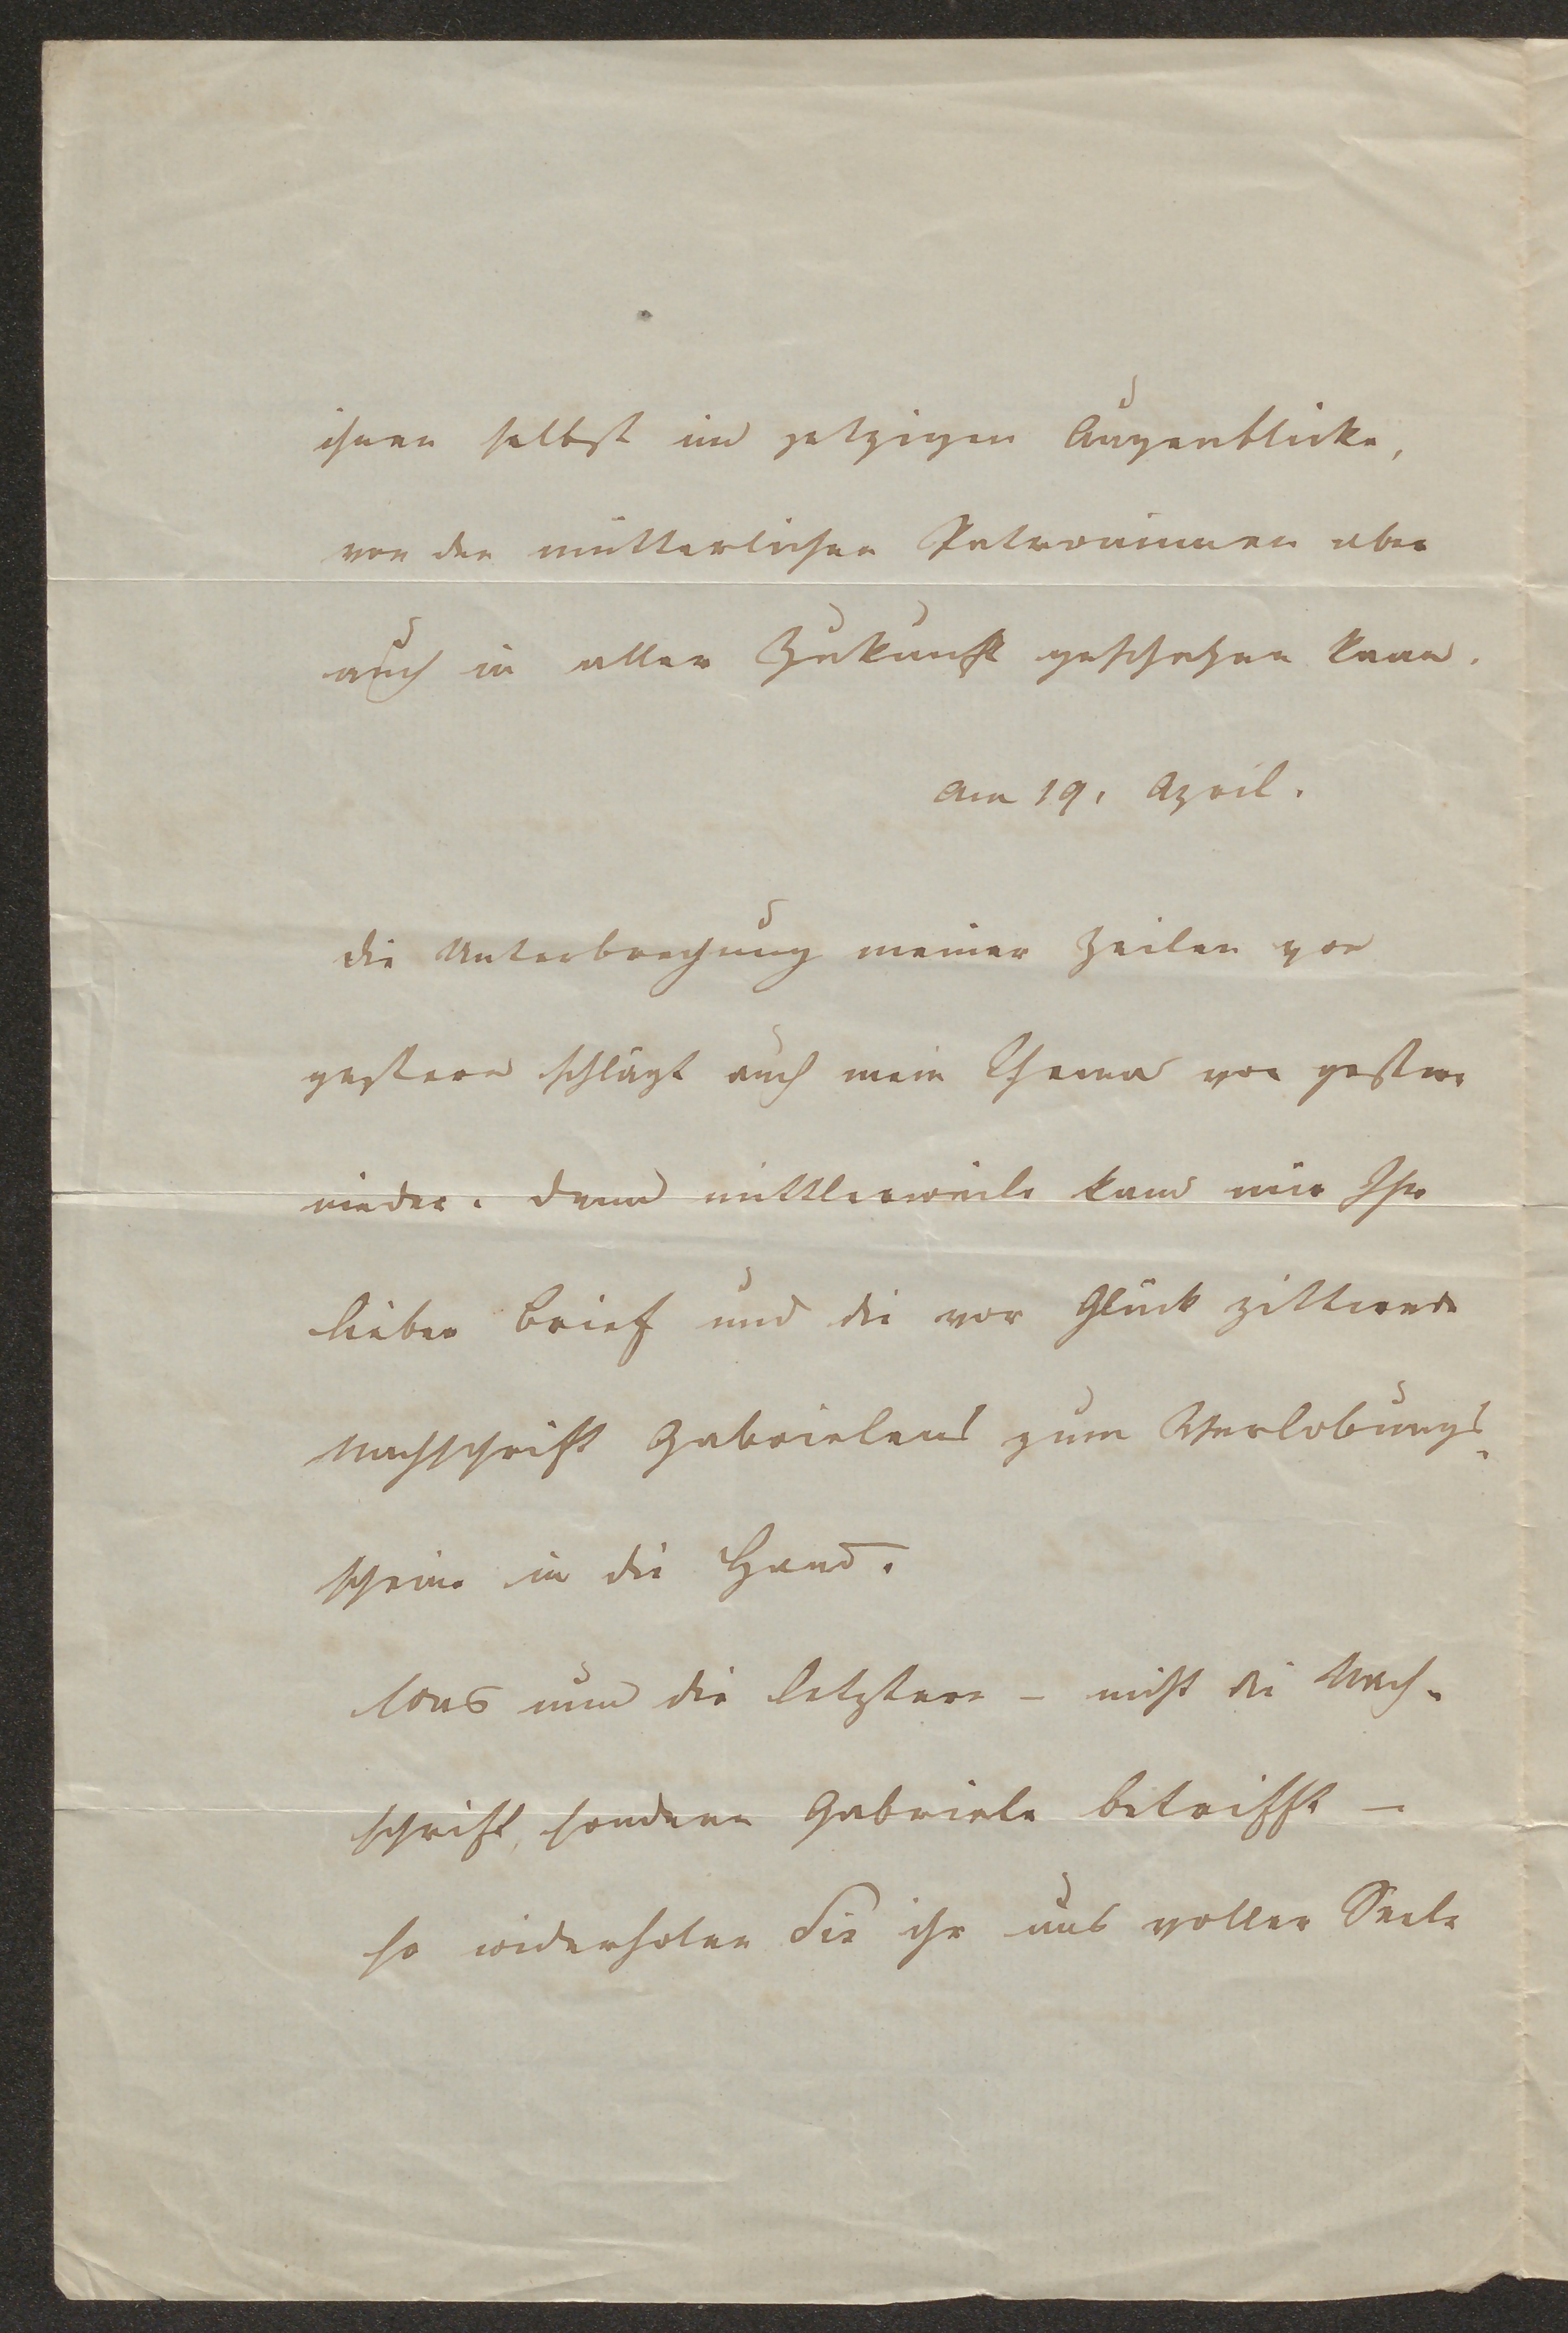 ihnen selbst im jetzigen Augenblicke,
von den mütterlichen Patroninnen aber
auch in aller Zukunft geschehen kann.
Am 19. April.
Die Unterbrechung meiner Zeilen von
gestern schlägt auch mein Thema von gestern
nieder. Denn mittlerweile kam mir Ihr
lieber Brief und die vor Glück zitternde
Nachschrift Gabrielens zum Verlobungs-
scheine in die Hand.
Was nun die letztere – nicht die Nach-
schrift, sondern Gabriele betrifft –
so widerholen Sie ihr aus voller Seele